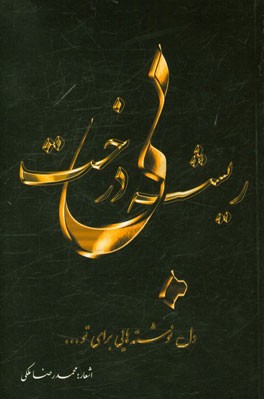 درخت بی ریشه
دل نوشته هایی برای تو ...
اشعار: محمدرضا ملکی